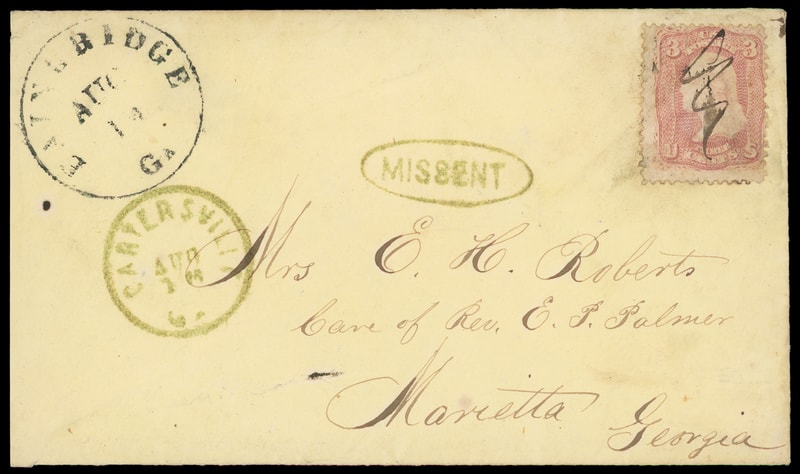 BAINBRIDGE
AUG
14
Ga
3 3
U S
MISSENT
CARTERSVILLE
AUG
16
Ga
Mrs E. H. Roberts
Care of Rev. E. P. Palmer
Marietta
Georgia